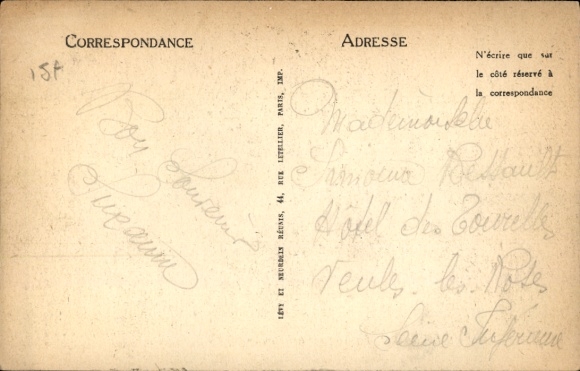 CORRESPONDANCE
ADRESSE
N'écrire que sur
le côté réservé à
la correspondance
15f
Bon
Souvenir
Suzanne
LÉVY ET NEURDEIN RÉUNIS, 44, RUE LETELLIER, PARIS, IMP.
Mademoiselle
Hôtel des Tourelles
Veules les Roses
Seine Inférieure